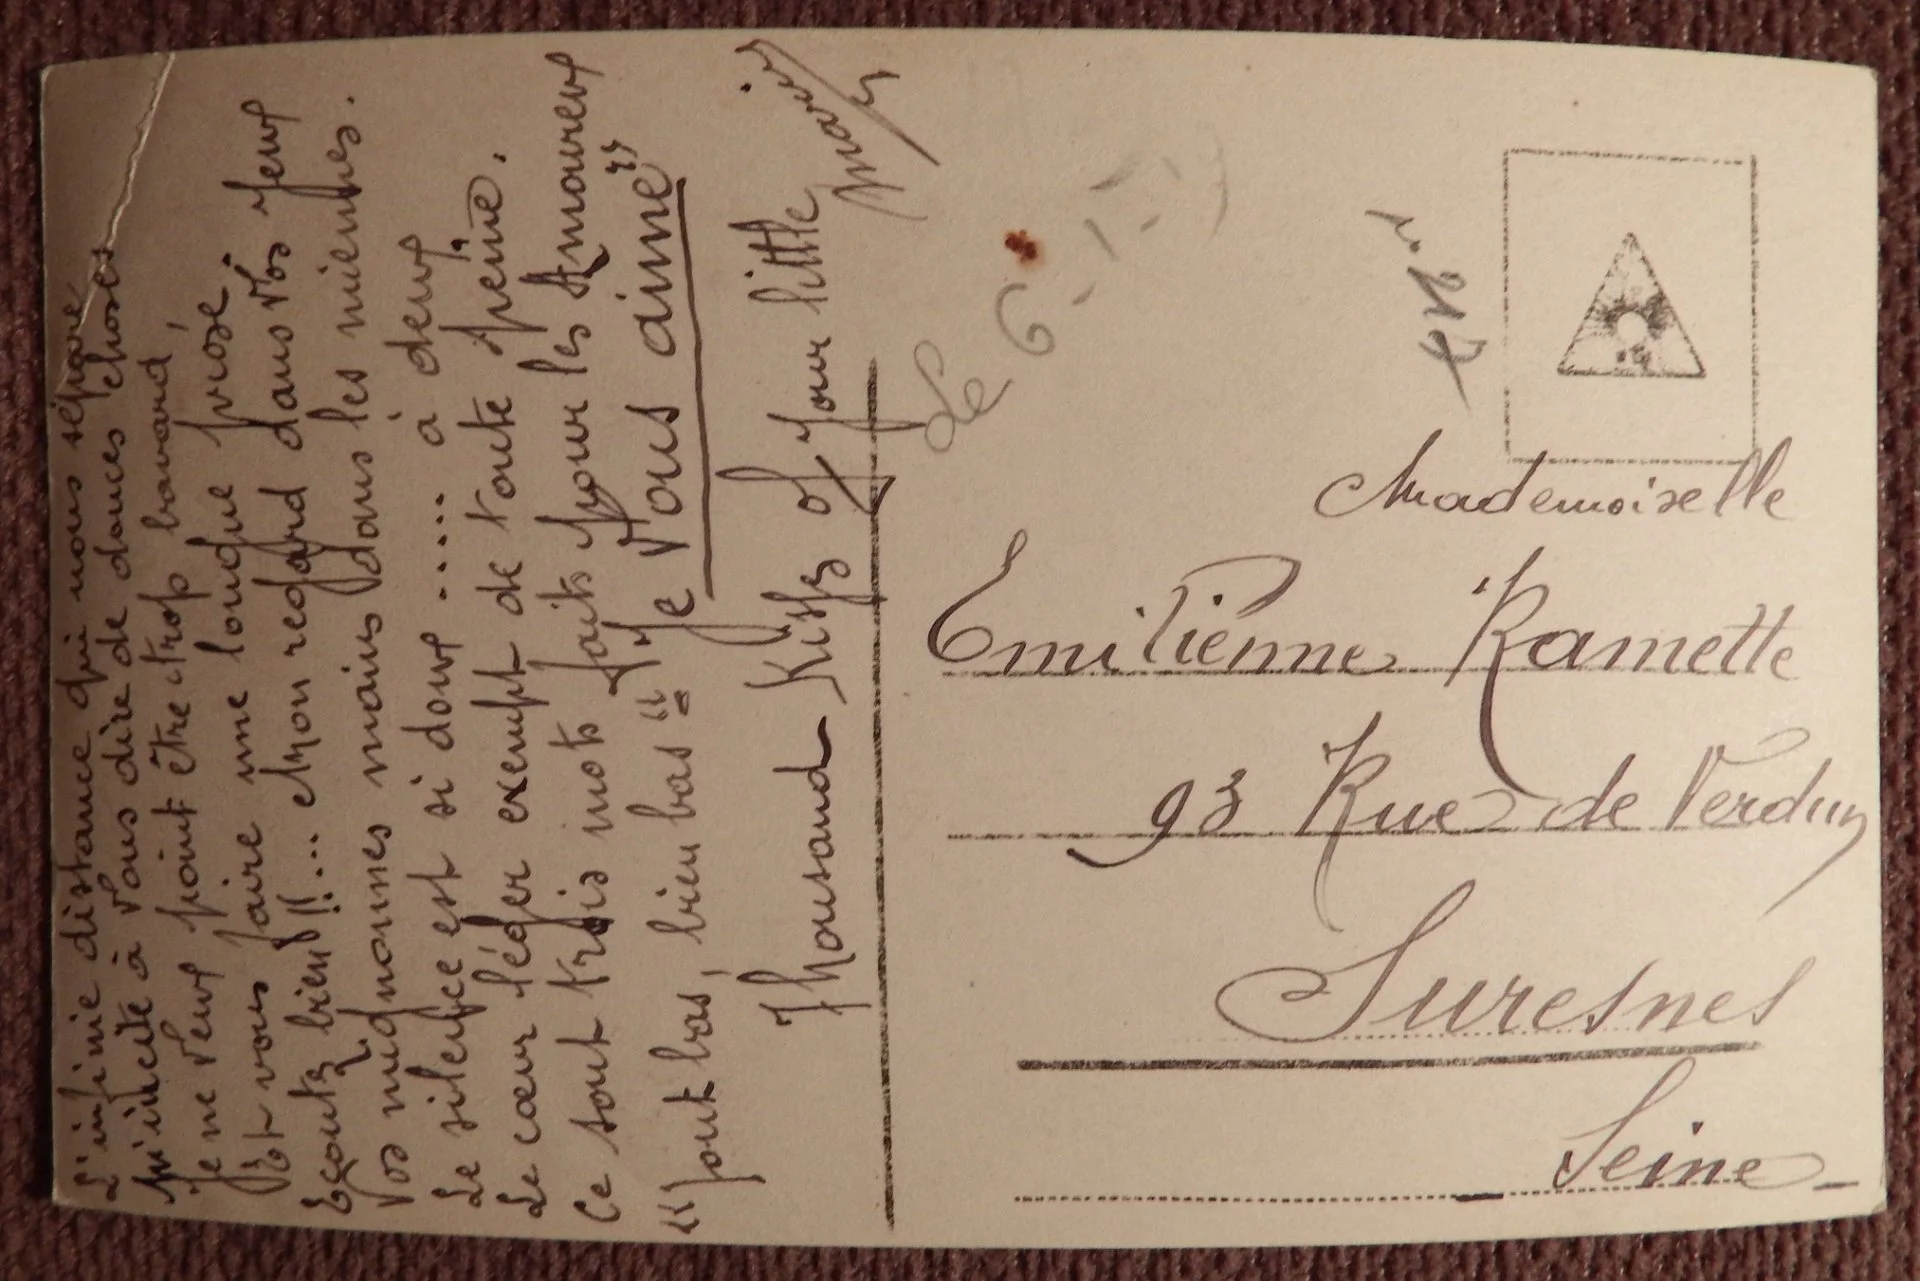 L'infinie distance qui nous sépare
M'incite à vous dire de douces choses
Je ne veux point être trop bavard,
Et vous faire une longue prose.
Ecoutz bien!!... Mon regard dans vos yeux
Vos mignonnes mains dans les miennes.
Le silence est si doux ..... à deux
Le cœur léger exempt de toute peine.
Ce sont trois mots faits pour les Amoureux
"Tout bas, bien bas = "Je vous aime"
Thousand Kisses of your little
Le 6-1-
Mademoiselle
Emilienne Ramette
93 Rue de Verdun
Suresnes
Seine